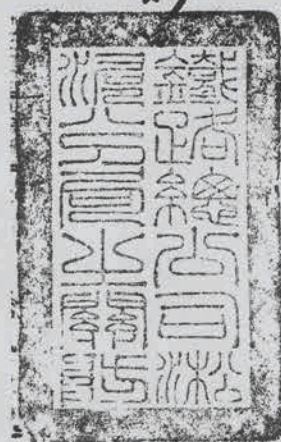 鐵路總公司淞
滬之關防